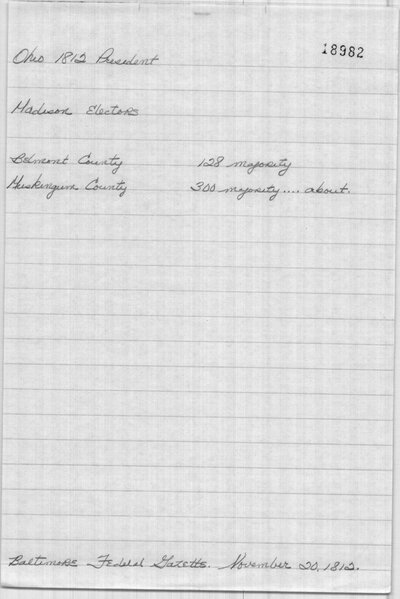 18982
Ohio 1812 President
Madison Electors
Belmont County 128 majority
Muskingum County 300 majority.... about.
Baltimore Federal Gazette. November 20, 1812.